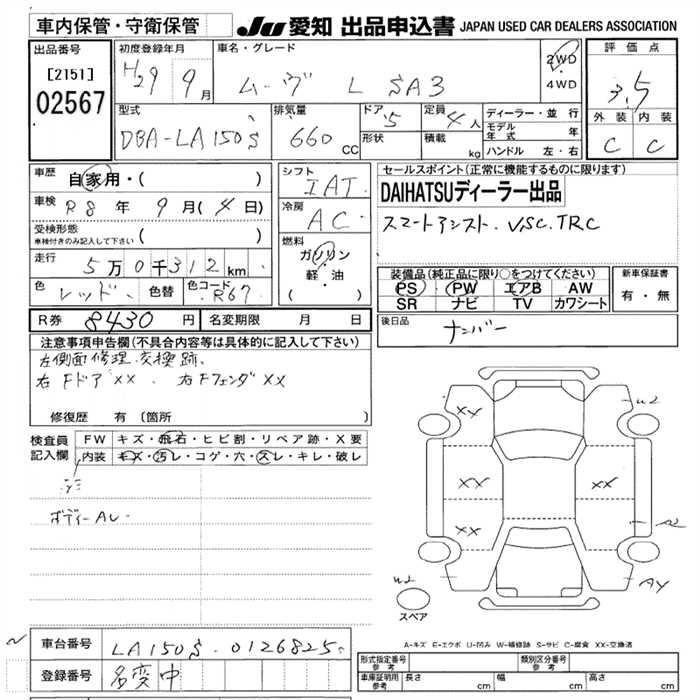 車内保管・守衛保管
JU 愛知 出品申込書 JAPAN USED CAR DEALERS ASSOCIATION
出品番号
[2151]
02567
初度登録年月
H29 9月
車名・グレード
ムーヴ L SA3
2WD
4WD
評価点
3.5
外装 内装
C C
型式
DBA-LA150S
排気量
660 CC
ドア 5
形状
定員 4人
積載 kg
ディーラー・並行
モデル年式 年
ハンドル 左・右
車歴
自家用・( )
車検 R8年 9月(4日)
受検形態
車検付きのみ記入して下さい ( )
走行 5万0千312km
色 レッド 色替 色コード R67
シフト
IAT
冷房
AC
燃料
ガソリン
・
軽・油
( )
セールスポイント(正常に機能するものに限ります)
DAIHATSUディーラー出品
スマートアシスト. VSC. TRC
装備品(純正品に限り○をつけてください)
PS PW エアB AW
SR ナビ TV カワシート
新車保証書
有・無
R券 8430円 名変期限 月 日
後日品
ナンバー
注意事項申告欄(不具合内容等は具体的に記入して下さい)
左側面修理.交換跡.
右FドアXX. 右FフェンダXX
修復歴 有(箇所 )
検査員記入欄
FW キズ・飛石・ヒビ割・リペア跡・X要
内装 キズ・汚レ・コゲ・穴・スレ・キレ・破レ
ボディーAし
XX
U2
XX
XX
XX
AY
U2
スペア
A-キズ E-エクボ U-凹み W-補修跡 S-サビ C-腐食 XX-交換済
車台番号 LA150S-0126825
登録番号 名変中
形式指定番号参考
類別区分番号参考
車庫証明用参考 長さ cm 幅 cm 高さ cm